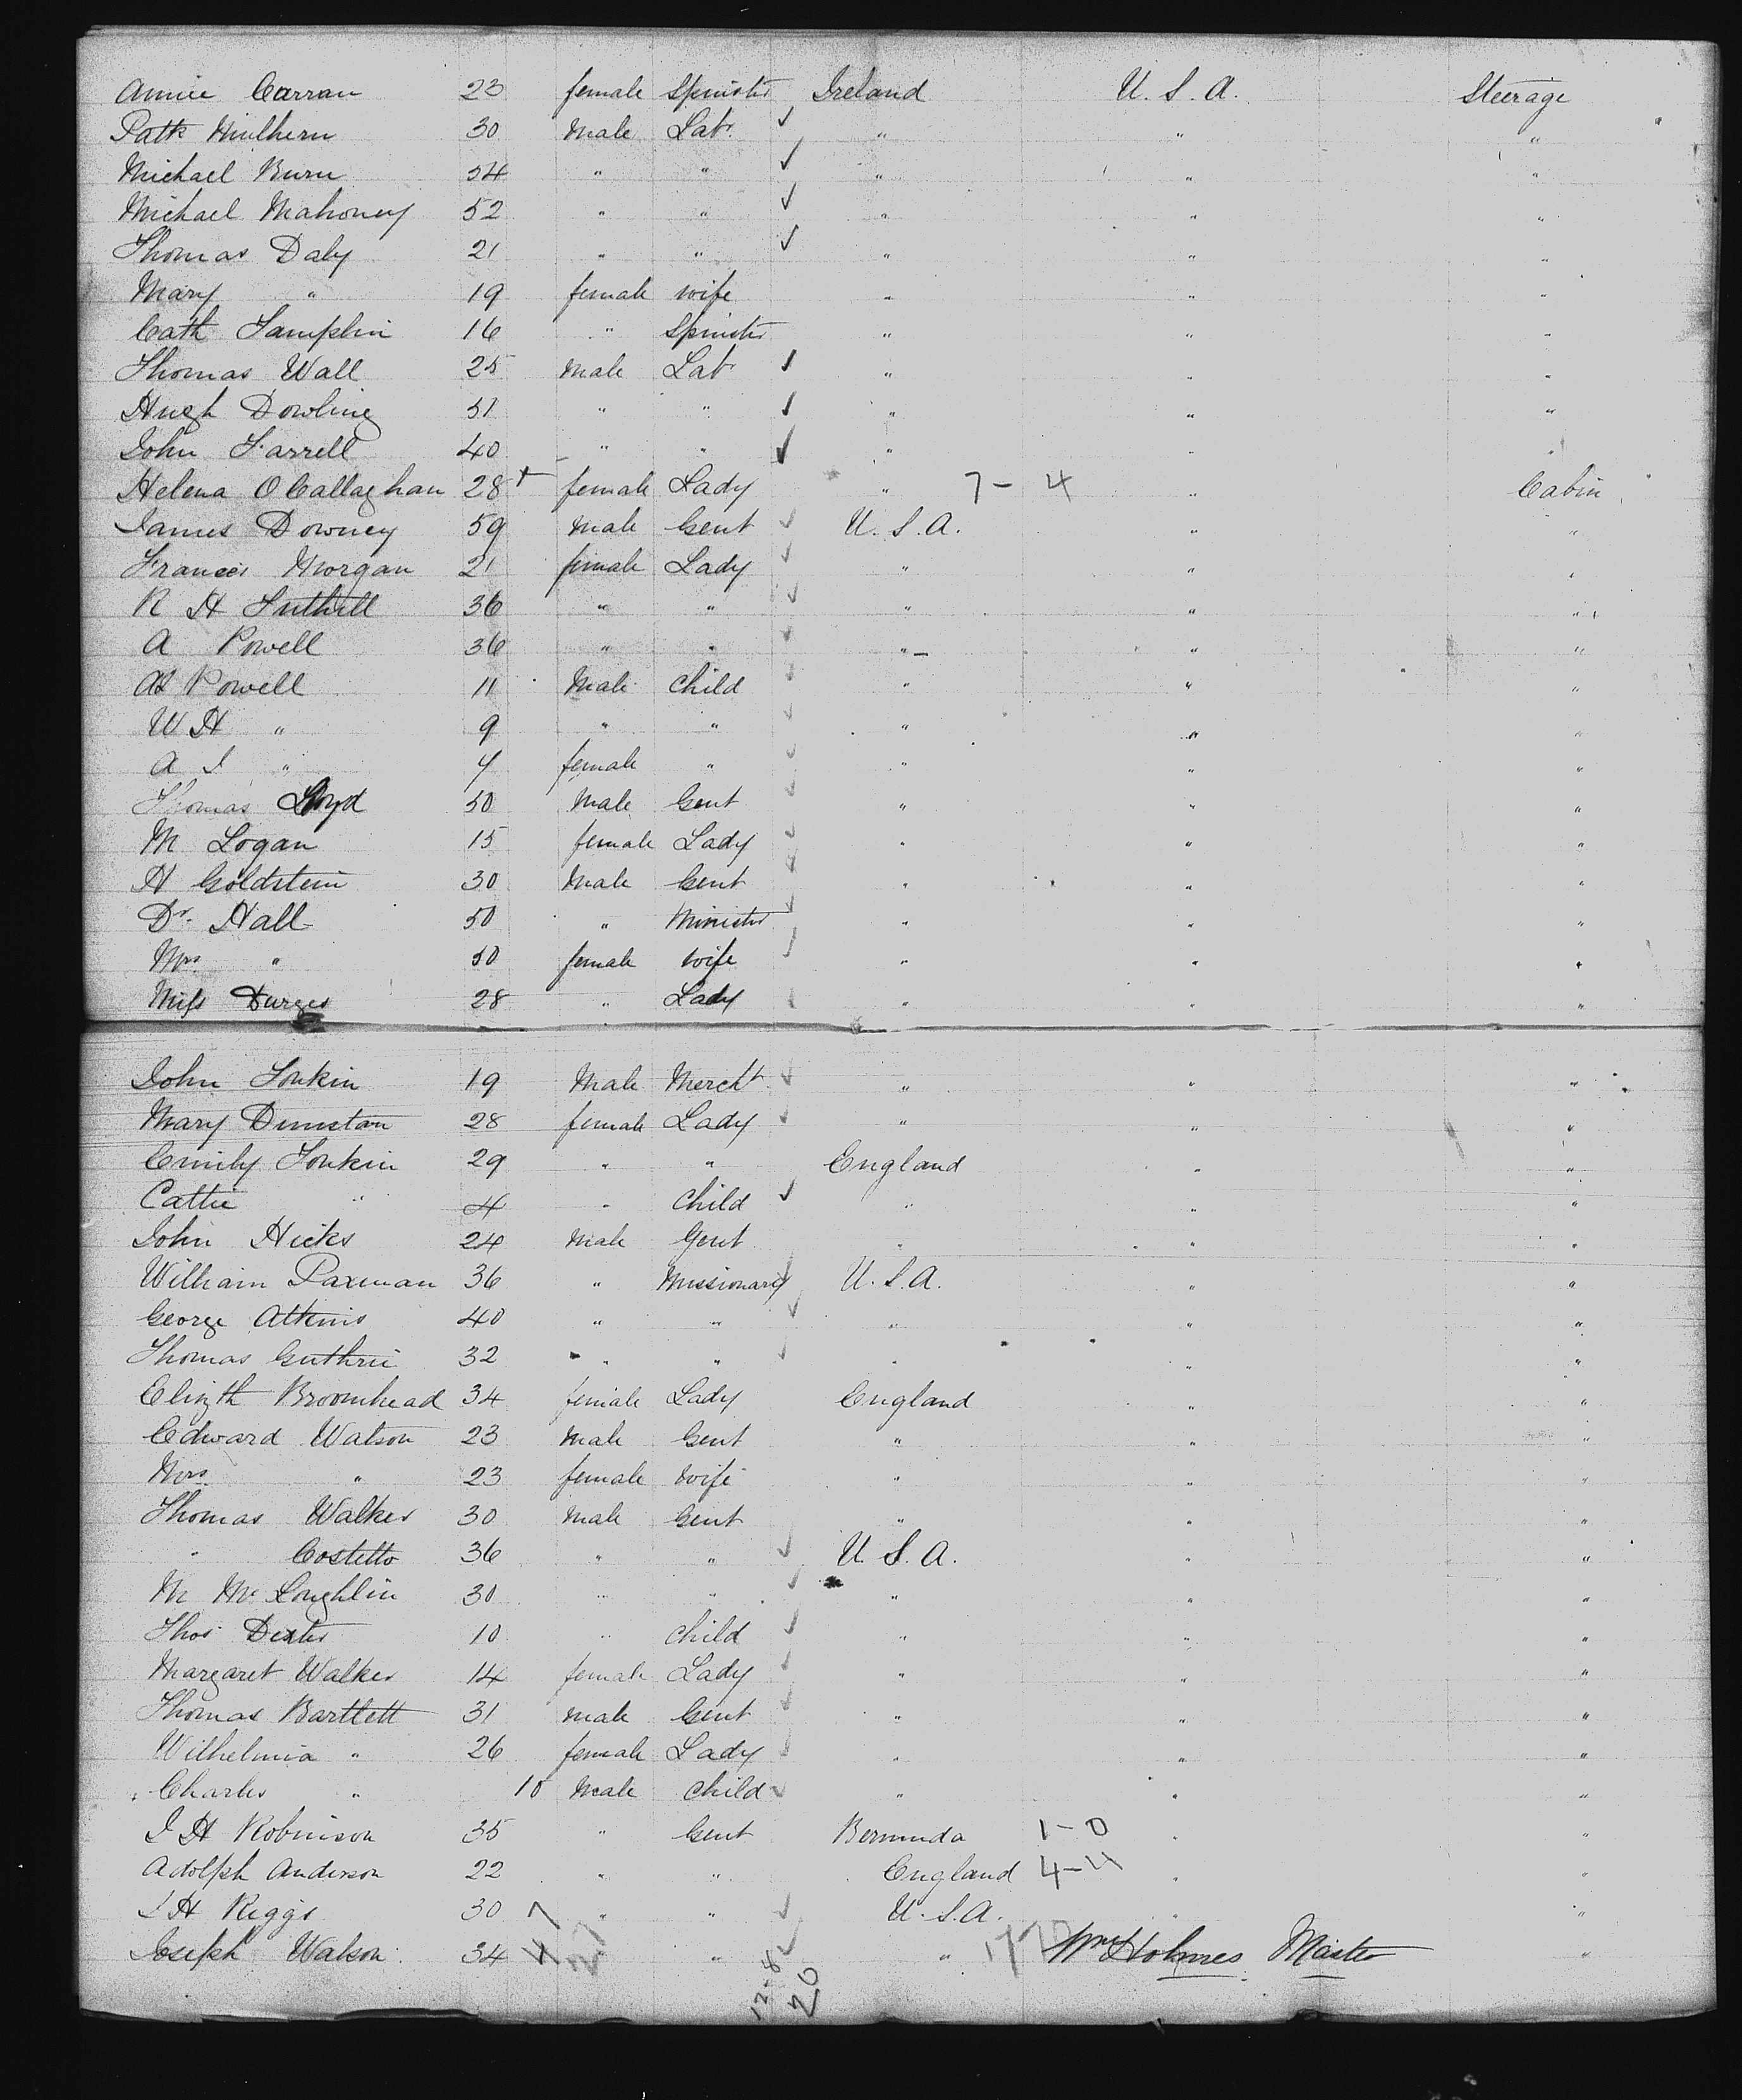 Annie Carran 23 female Spinster Ireland U. S. A. Steerage
Patk Mulhern 30 Male Labr ✓ " " "
Michael Burn 54 " " ✓ " " "
Michael Mahoney 52 " " ✓ " " "
Thomas Daly 21 " " ✓ " " "
Mary " 19 female wife " " "
Cath Tamplin 16 " Spinster " " "
Thomas Wall 25 Male Labr ✓ " " "
Hugh Dowling 51 " " ✓ " " "
John Farrell 40 " " ✓ " " "
Helena O Callaghan 28 + female Lady " 7-4 " Cabin
James Downey 59 Male Gent ✓ U. S. A. " "
Frances Morgan 21 female Lady ✓ " " "
R H Tuthill 36 " " ✓ " " "
A Powell 36 " " ✓ " " "
Powell 11 Male Child ✓ " " "
W H " 9 " " ✓ " " "
A I " 4 female " ✓ " " "
Thomas Lloyd 50 Male Gent ✓ " " "
M Logan 15 female Lady ✓ " " "
H Goldstein 30 Male Gent ✓ " " "
Dr. Hall 50 " Minister ✓ " " "
Mrs " 50 female wife ✓ " " "
Miss 28 " Lady ✓ " " "
John Tonkin 19 Male Mercht ✓ " " "
Mary Dunstan 28 female Lady ✓ " " "
Emily Tonkin 29 " " England " "
Cattie " 4 " Child ✓ " " "
John Hicks 24 Male Gent " " "
William Paxman 36 " Missionary ✓ U. S. A. " "
George Atkins 40 " " ✓ " " "
Thomas Guthrie 32 " " ✓ " " "
Elizth Broomhead 34 female Lady England " "
Edward Watson 23 Male Gent " " "
Mrs " 23 female wife " " "
Thomas Walker 30 Male Gent " " "
" Costello 36 " " ✓ U. S. A. " "
M McLoughlin 30 " " ✓ " " "
Thos Dexter 10 " Child ✓ " " "
Margaret Walker 14 female Lady ✓ " " "
Thomas Bartlett 31 Male Gent ✓ " " "
Wilhelmia " 26 female Lady ✓ " " "
Charles " 10 Male Child ✓ " " "
J H Robinson 35 " Gent Bermuda 1-0 " "
Adolph Anderson 22 " " England 4-4 " "
J H Riggs 30 7 " " ✓ U. S. A. " "
Joseph Watson 34 4 21 " ✓ " Wm Holmes Master "
12-8
20